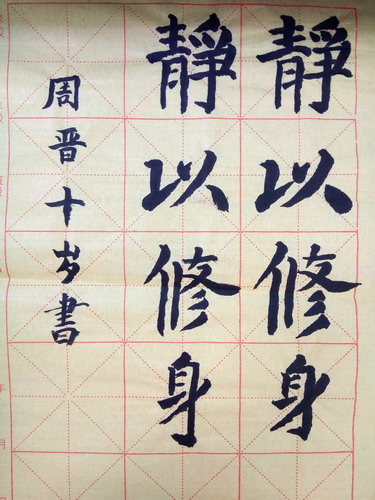 靜以修身
靜以修身
周晋十岁書